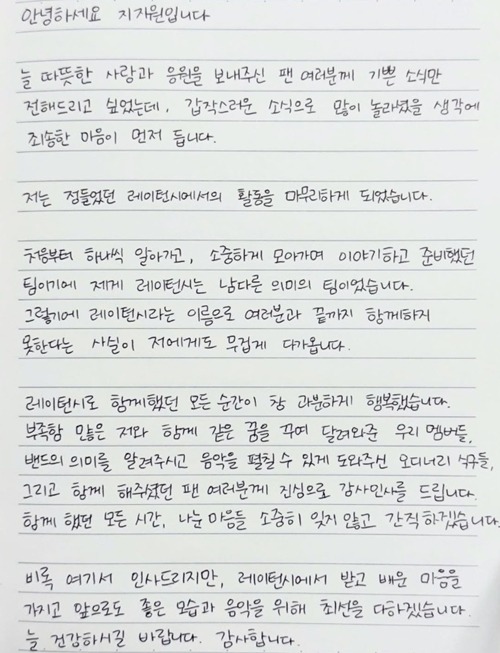 안녕하세요 지자원입니다
늘 따뜻한 사랑과 응원을 보내주신 팬 여러분께 기쁜 소식만
전해드리고 싶었는데, 갑작스러운 소식으로 많이 놀라셨을 생각에
죄송한 마음이 먼저 듭니다.
저는 정들었던 레이턴시에서의 활동을 마무리하게 되었습니다.
처음부터 하나씩 알아가고, 소중하게 모아가며 이야기하고 준비했던
팀이기에 제게 레이턴시는 남다른 의미의 팀이었습니다.
그렇기에 레이턴시라는 이름으로 여러분과 끝까지 함께하지
못한다는 사실이 저에게도 무겁게 다가옵니다.
레이턴시로 함께했던 모든 순간이 참 과분하게 행복했습니다.
부족함 많은 저와 함께 같은 꿈을 꾸며 달려와준 우리 멤버들,
밴드의 의미를 알려주시고 음악을 펼칠 수 있게 도와주신 오디너리 식구들,
그리고 함께 해주셨던 팬 여러분께 진심으로 감사인사를 드립니다.
함께 했던 모든 시간, 나눈 마음들 소중히 잊지 않고 간직하겠습니다.
비록 여기서 인사드리지만, 레이턴시에서 받고 배운 마음을
가지고 앞으로도 좋은 모습과 음악을 위해 최선을 다하겠습니다.
늘 건강하시길 바랍니다. 감사합니다.